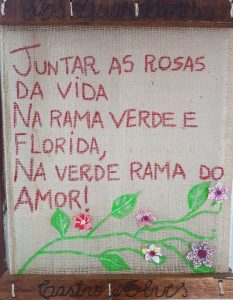 JUNTAR AS ROSAS
DA VIDA
NA RAMA VERDE E
FLORIDA,
NA VERDE RAMA DO
AMOR!
Castro Alves